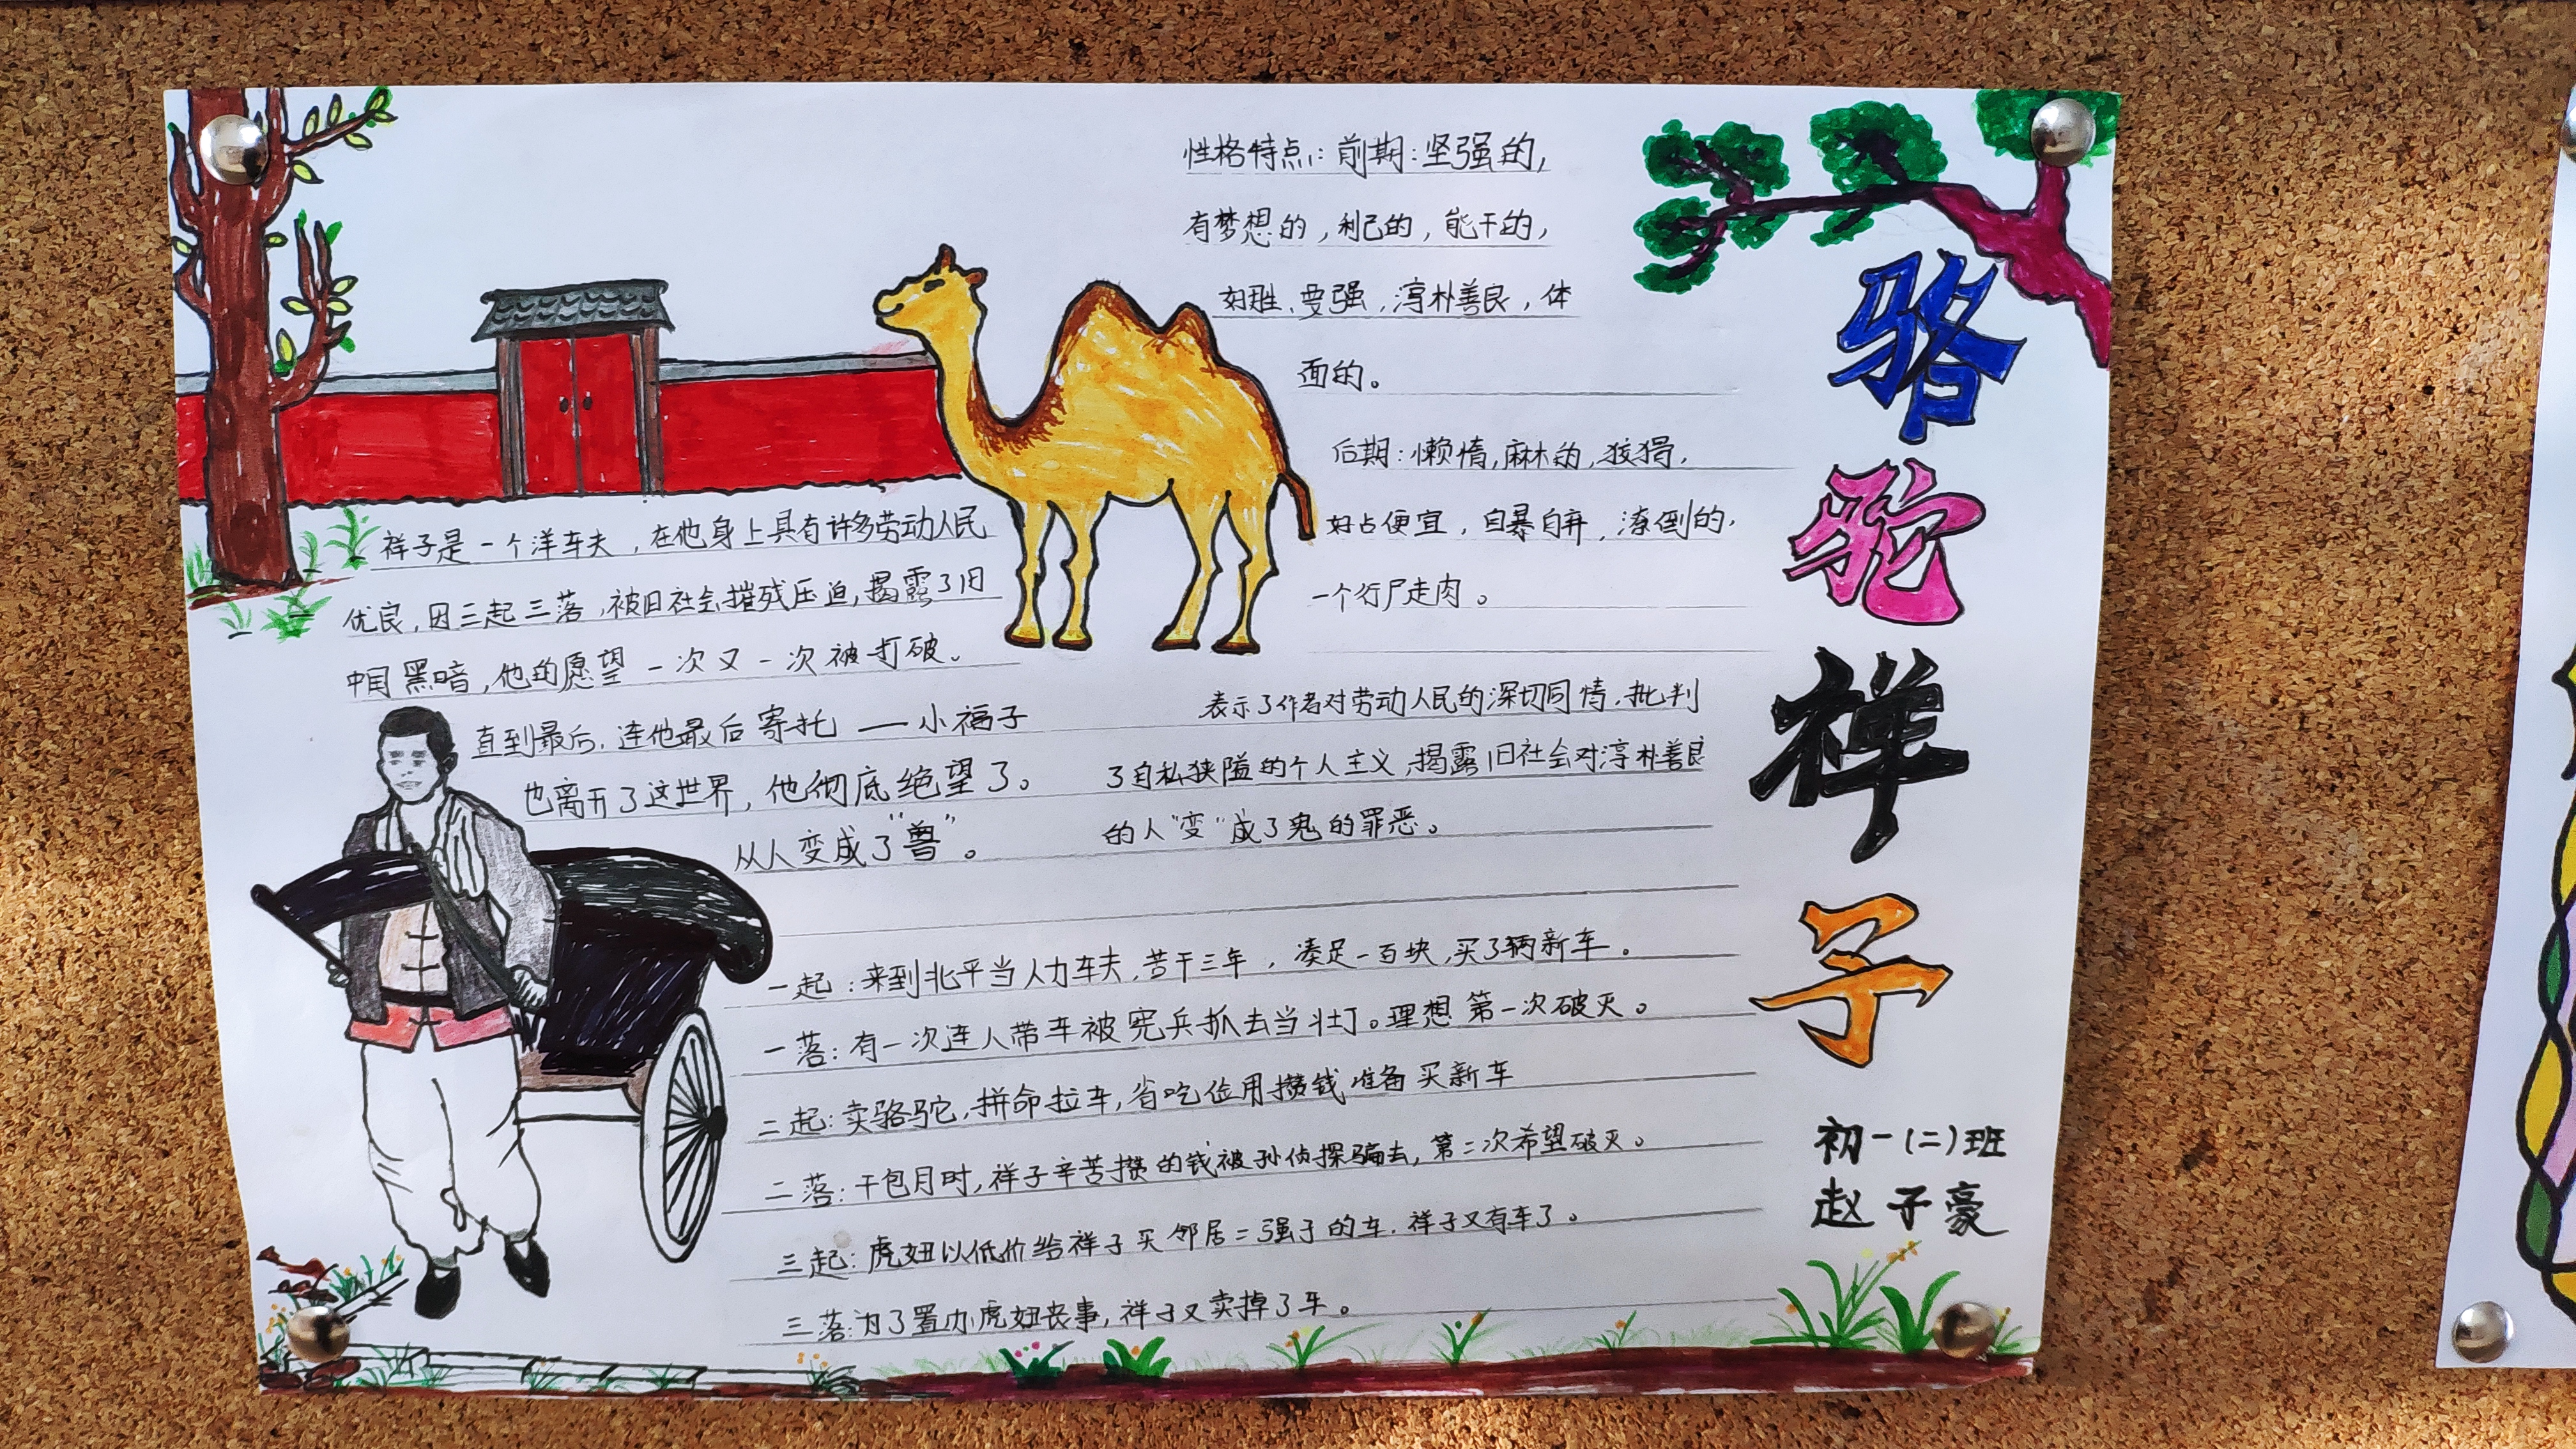 骆驼祥子
初一(二)班
赵子豪
性格特点:前期:坚强的,
有梦想的,利己的,能干的,
好胜、要强,淳朴善良,体
面的。
后期:懒惰,麻木的,狡猾,
好占便宜,自暴自弃,潦倒的,
一个行尸走肉。
祥子是一个洋车夫,在他身上具有许多劳动人民
优良,因三起三落,被旧社会摧残压迫,揭露了旧
中国黑暗,他的愿望一次又一次被打破。
直到最后,连他最后寄托——小福子
也离开了这世界,他彻底绝望了。
从人变成了"兽"。
表示了作者对劳动人民的深切同情,批判
了自私狭隘的个人主义,揭露旧社会对淳朴善良
的人"变"成了鬼的罪恶。
一起:来到北平当人力车夫,苦干三年,凑足一百块,买了辆新车。
一落:有一次连人带车被宪兵抓去当壮丁。理想第一次破灭。
二起:卖骆驼,拼命拉车,省吃俭用攒钱准备买新车
二落:干包月时,祥子辛苦攒的钱被孙侦探骗去,第二次希望破灭。
三起:虎妞以低价给祥子买邻居二强子的车,祥子又有车了。
三落:为了置办虎妞丧事,祥子又卖掉了车。